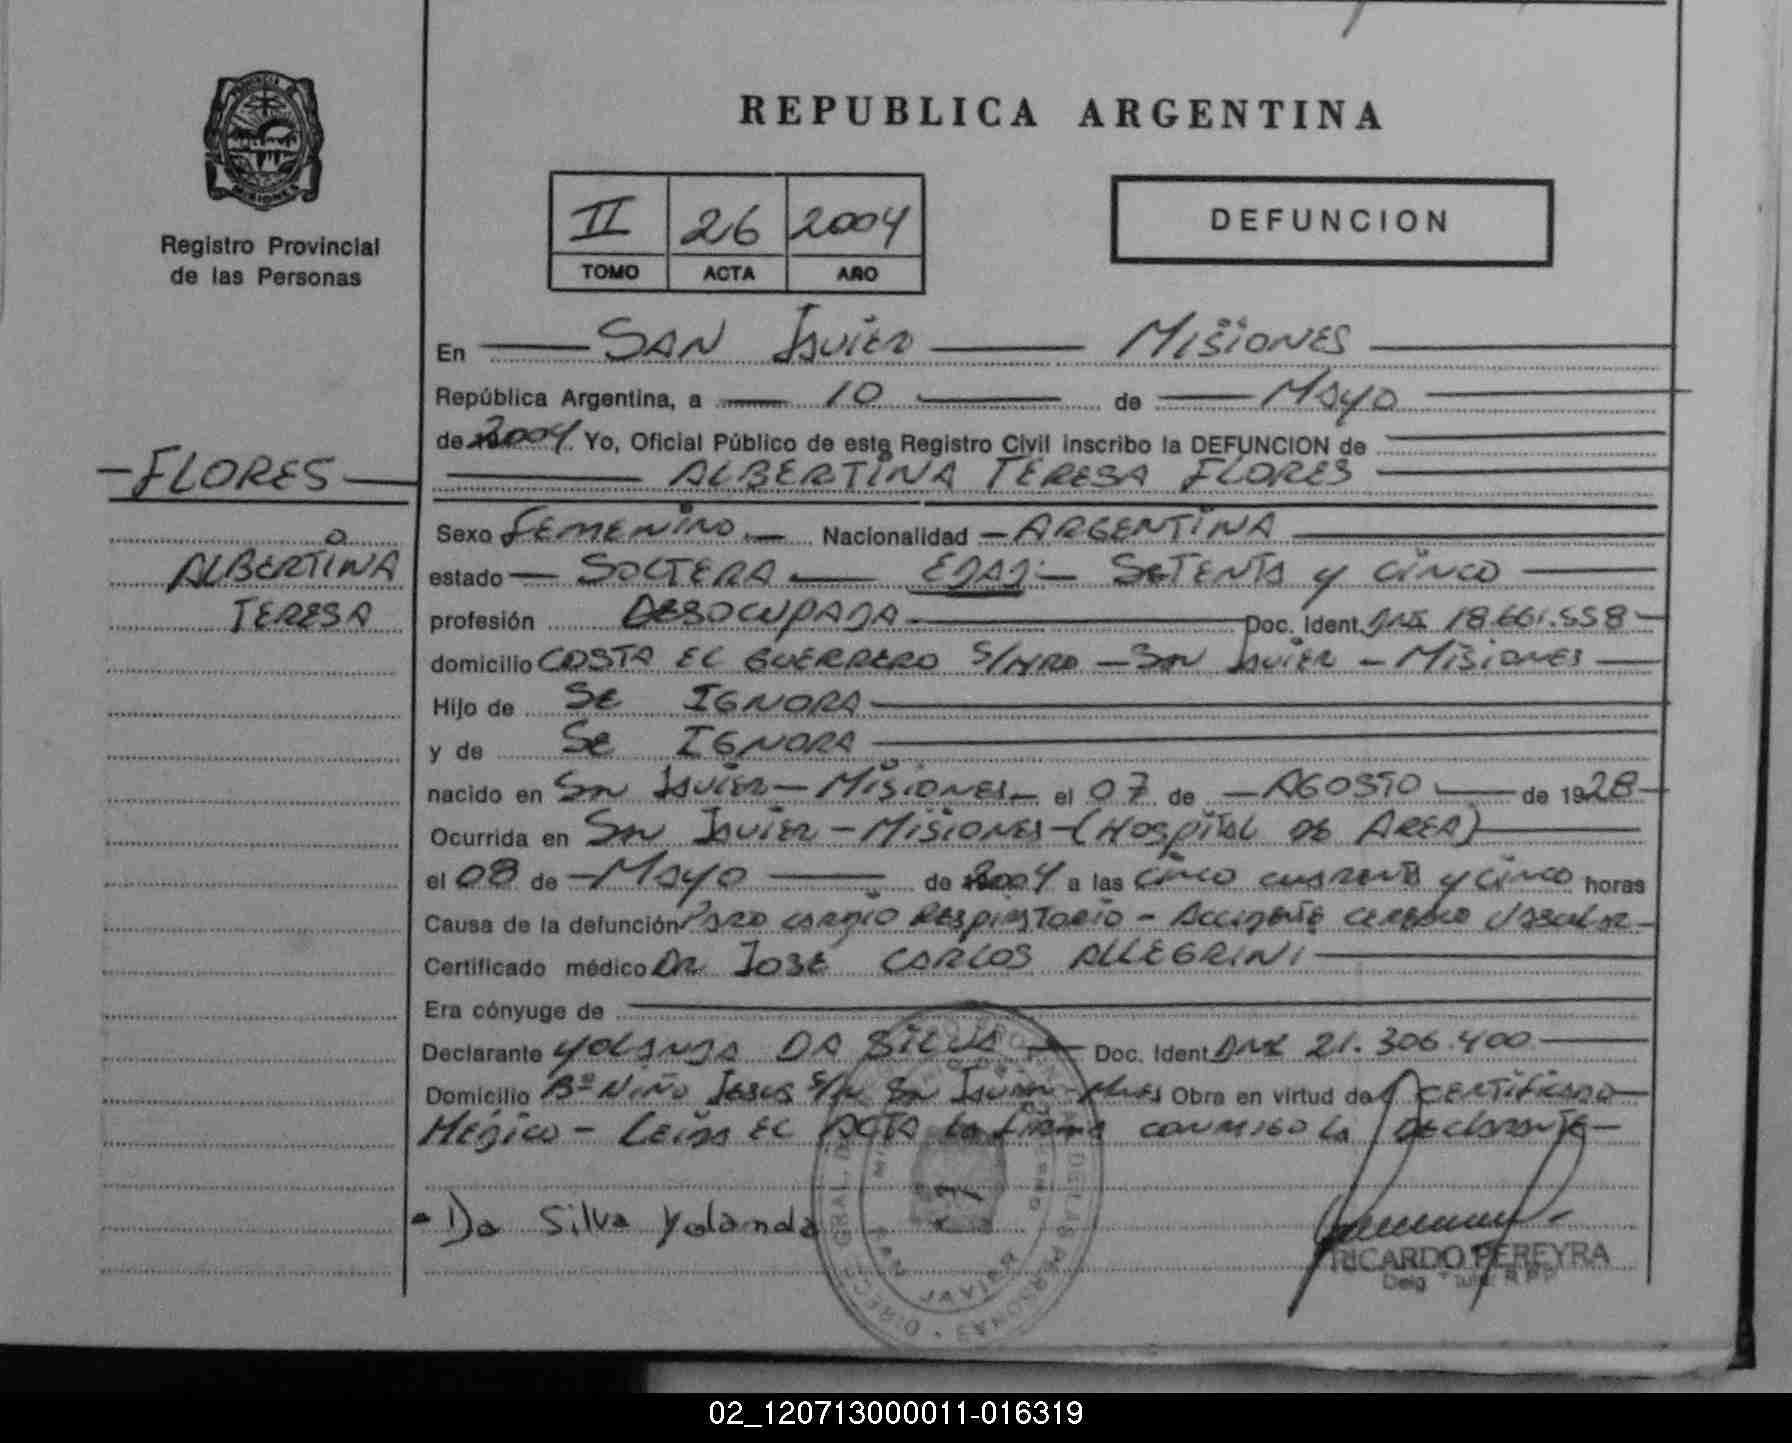 REPUBLICA ARGENTINA
MISIONES
Registro Provincial
de las Personas
II 26 2004
TOMO ACTA AÑO
DEFUNCION
En SAN JAVIER MISIONES
República Argentina, a 10 de MAYO
de 2004 Yo, Oficial Público de este Registro Civil inscribo la DEFUNCION de
ALBERTINA TERESA FLORES
FLORES
ALBERTINA
TERESA
Sexo FEMENINO Nacionalidad ARGENTINA
estado SOLTERA EDAD: SETENTA y CINCO
profesión DESOCUPADA Doc. Ident. DNI 18.661.558
domicilio COSTA EL GUERRERO S/NRO - SAN JAVIER - MISIONES
Hijo de SE IGNORA
y de SE IGNORA
nacido en SAN JAVIER - MISIONES el 07 de AGOSTO de 1928
Ocurrida en SAN JAVIER - MISIONES - (HOSPITAL DE AREA)
el 08 de MAYO de 2004 a las CINCO CUARENTA y CINCO horas
Causa de la defunción PARO CARDIO RESPIRATORIO - ACCIDENTE CEREBRO VASCULAR
Certificado médico DR JOSÉ CARLOS ALLEGRINI
Era cónyuge de
Declarante YOLANDA DA SILVA Doc. Ident DNI 21.306.400
Domicilio Bº NIÑO JESUS S/N SAN JAVIER - Mnes Obra en virtud de CERTIFICADO
MÉDICO - LEIDA EL ACTA LA FIRMA CONMIGO LA DECLARANTE
Da Silva Yolanda
RICARDO PEREYRA
Deleg. Titular R.P.P.
DE LAS PERSONAS
SAN JAVIER
02_120713000011-016319